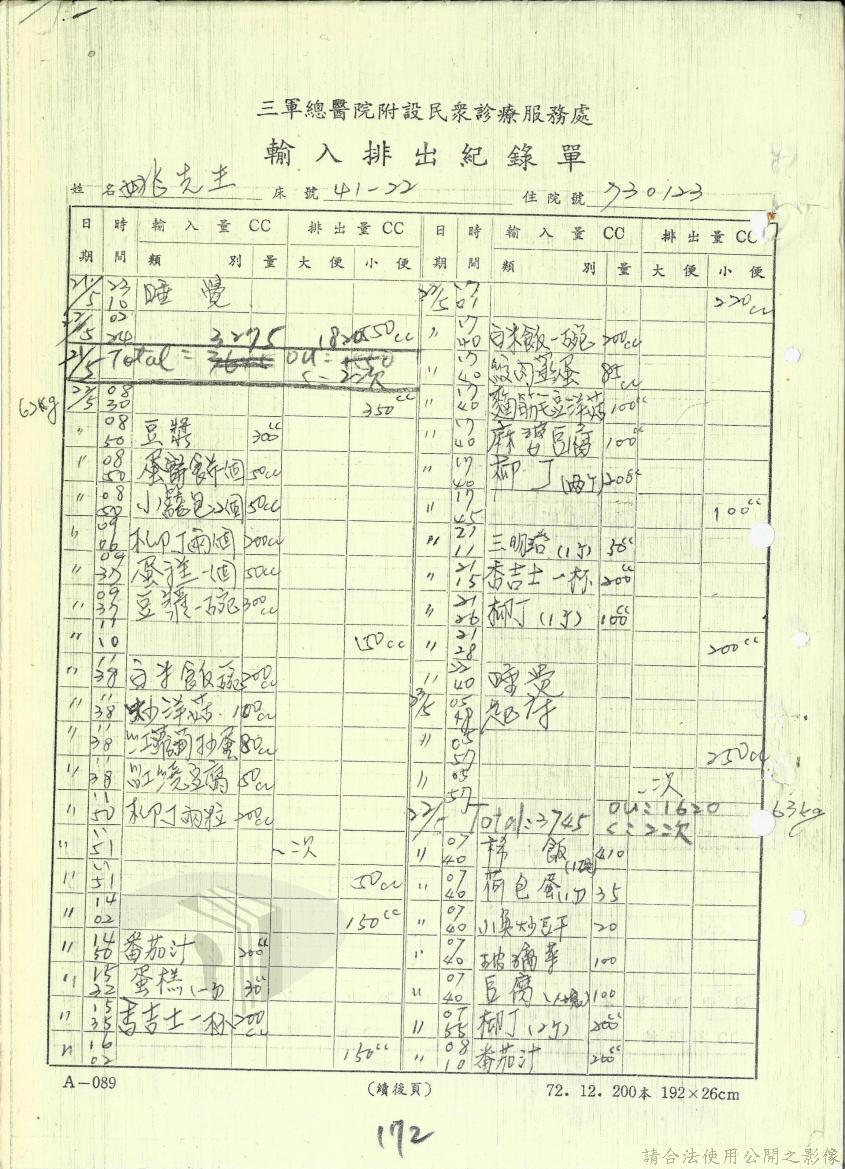 三軍總醫院附設民眾診療服務處
輸入排出紀錄單
姓名 姚先生 床號 41-22 住院號 730123
日期 時間 輸入量CC 類別 量 排出量CC 大便 小便
21/5 23 10 睡覺
22/5 02 24 550cc
21/5 Total = 3275 OU: 1820
C-2次
63kg
22/5 08 30 350cc
〃 08 50 豆漿 300cc
〃 08 50 蛋餅 個 50cc
〃 08 50 小籠包2個 50cc
〃 09 06 柳丁兩個 200cc
〃 09 37 蛋糕一個 50cc
〃 09 37 豆漿一碗 300cc
〃 11 10 150cc
〃 11 39 白米飯 碗 200cc
〃 11 38 炒洋菇 100cc
〃 11 38 炒蛋 80cc
〃 11 38 紅燒豆腐 50cc
〃 11 50 柳丁兩粒 200cc
〃 11 51 一次
〃 11 51 50cc
〃 14 02 150cc
〃 14 50 番茄汁 200cc
〃 15 32 蛋糕(一個) 30cc
〃 15 35 香吉士一杯 200cc
〃 16 02 150cc
日期 時間 輸入量CC 類別 量 排出量CC 大便 小便
22/5 17 01 220cc
〃 17 40 白米飯一碗 200cc
〃 17 40 絞肉蛋 85cc
〃 17 40 麵筋豆洋菇 100cc
〃 17 40 麻婆豆腐 100cc
〃 17 40 柳丁(兩个) 200cc
〃 17 45 100cc
〃 21 11 三明治(1个) 50cc
〃 21 15 香吉士一杯 200cc
〃 21 26 柳丁(1个) 100cc
〃 21 28 200cc
〃 22 40 睡覺
23/5 05 起床
〃 05 57 250cc
〃 05 57 一次
22/5 Total: 3745 OU: 1620
C: 2次
63kg
〃 07 40 稀飯(1碗) 410
〃 07 40 荷包蛋(1个) 35
〃 07 40 小魚炒豆干 20
〃 07 40 100
〃 07 40 豆腐 100
〃 07 55 柳丁(2个) 200cc
〃 08 10 番茄汁 200cc
A-089
(續後頁)
72.12.200本 192×26cm
172
請合法使用公開之影像